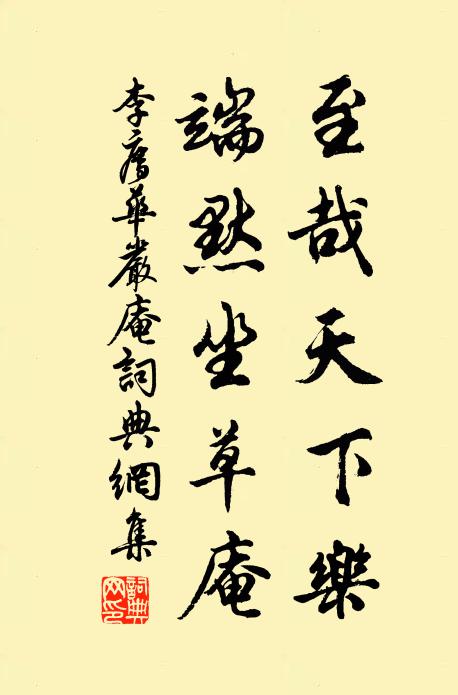 至哉天下樂
端默坐草庵
李廌華嚴庵詞典網集
詞典網印